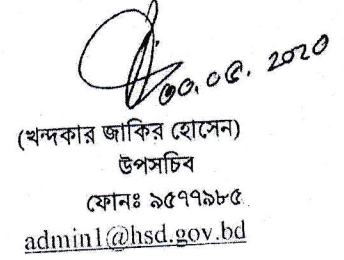 ৩০.০৫.2020
(খন্দকার জাকির হোসেন)
উপসচিব
ফোনঃ ৯৫৭৭৯৮৫
admin1@hsd.gov.bd